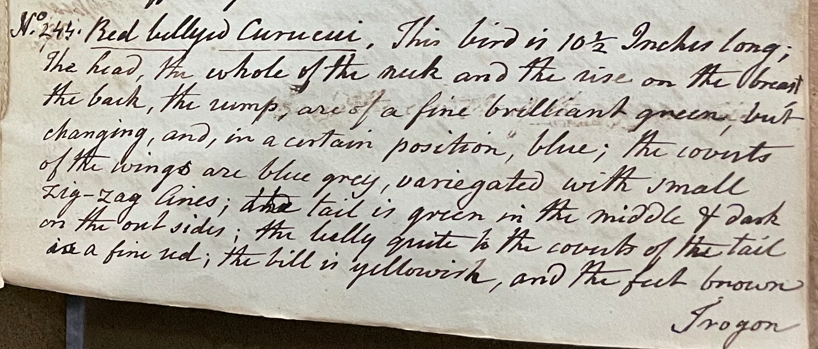 No. 244. Red bellyed Curucui, This bird is 10½ Inches long;
The head, the whole of the neck and the rise on the breast
the back, the rump, are of a fine brilliant green, but
changing, and, in a certain position, blue; the coverts
of the wings are blue grey, variegated with small
zig-zag lines; the tail is green in the middle & dark
on the out sides; the belly quite to the coverts of the tail
is a fine red; the bill is yellowish, and the feet brown
Trogon